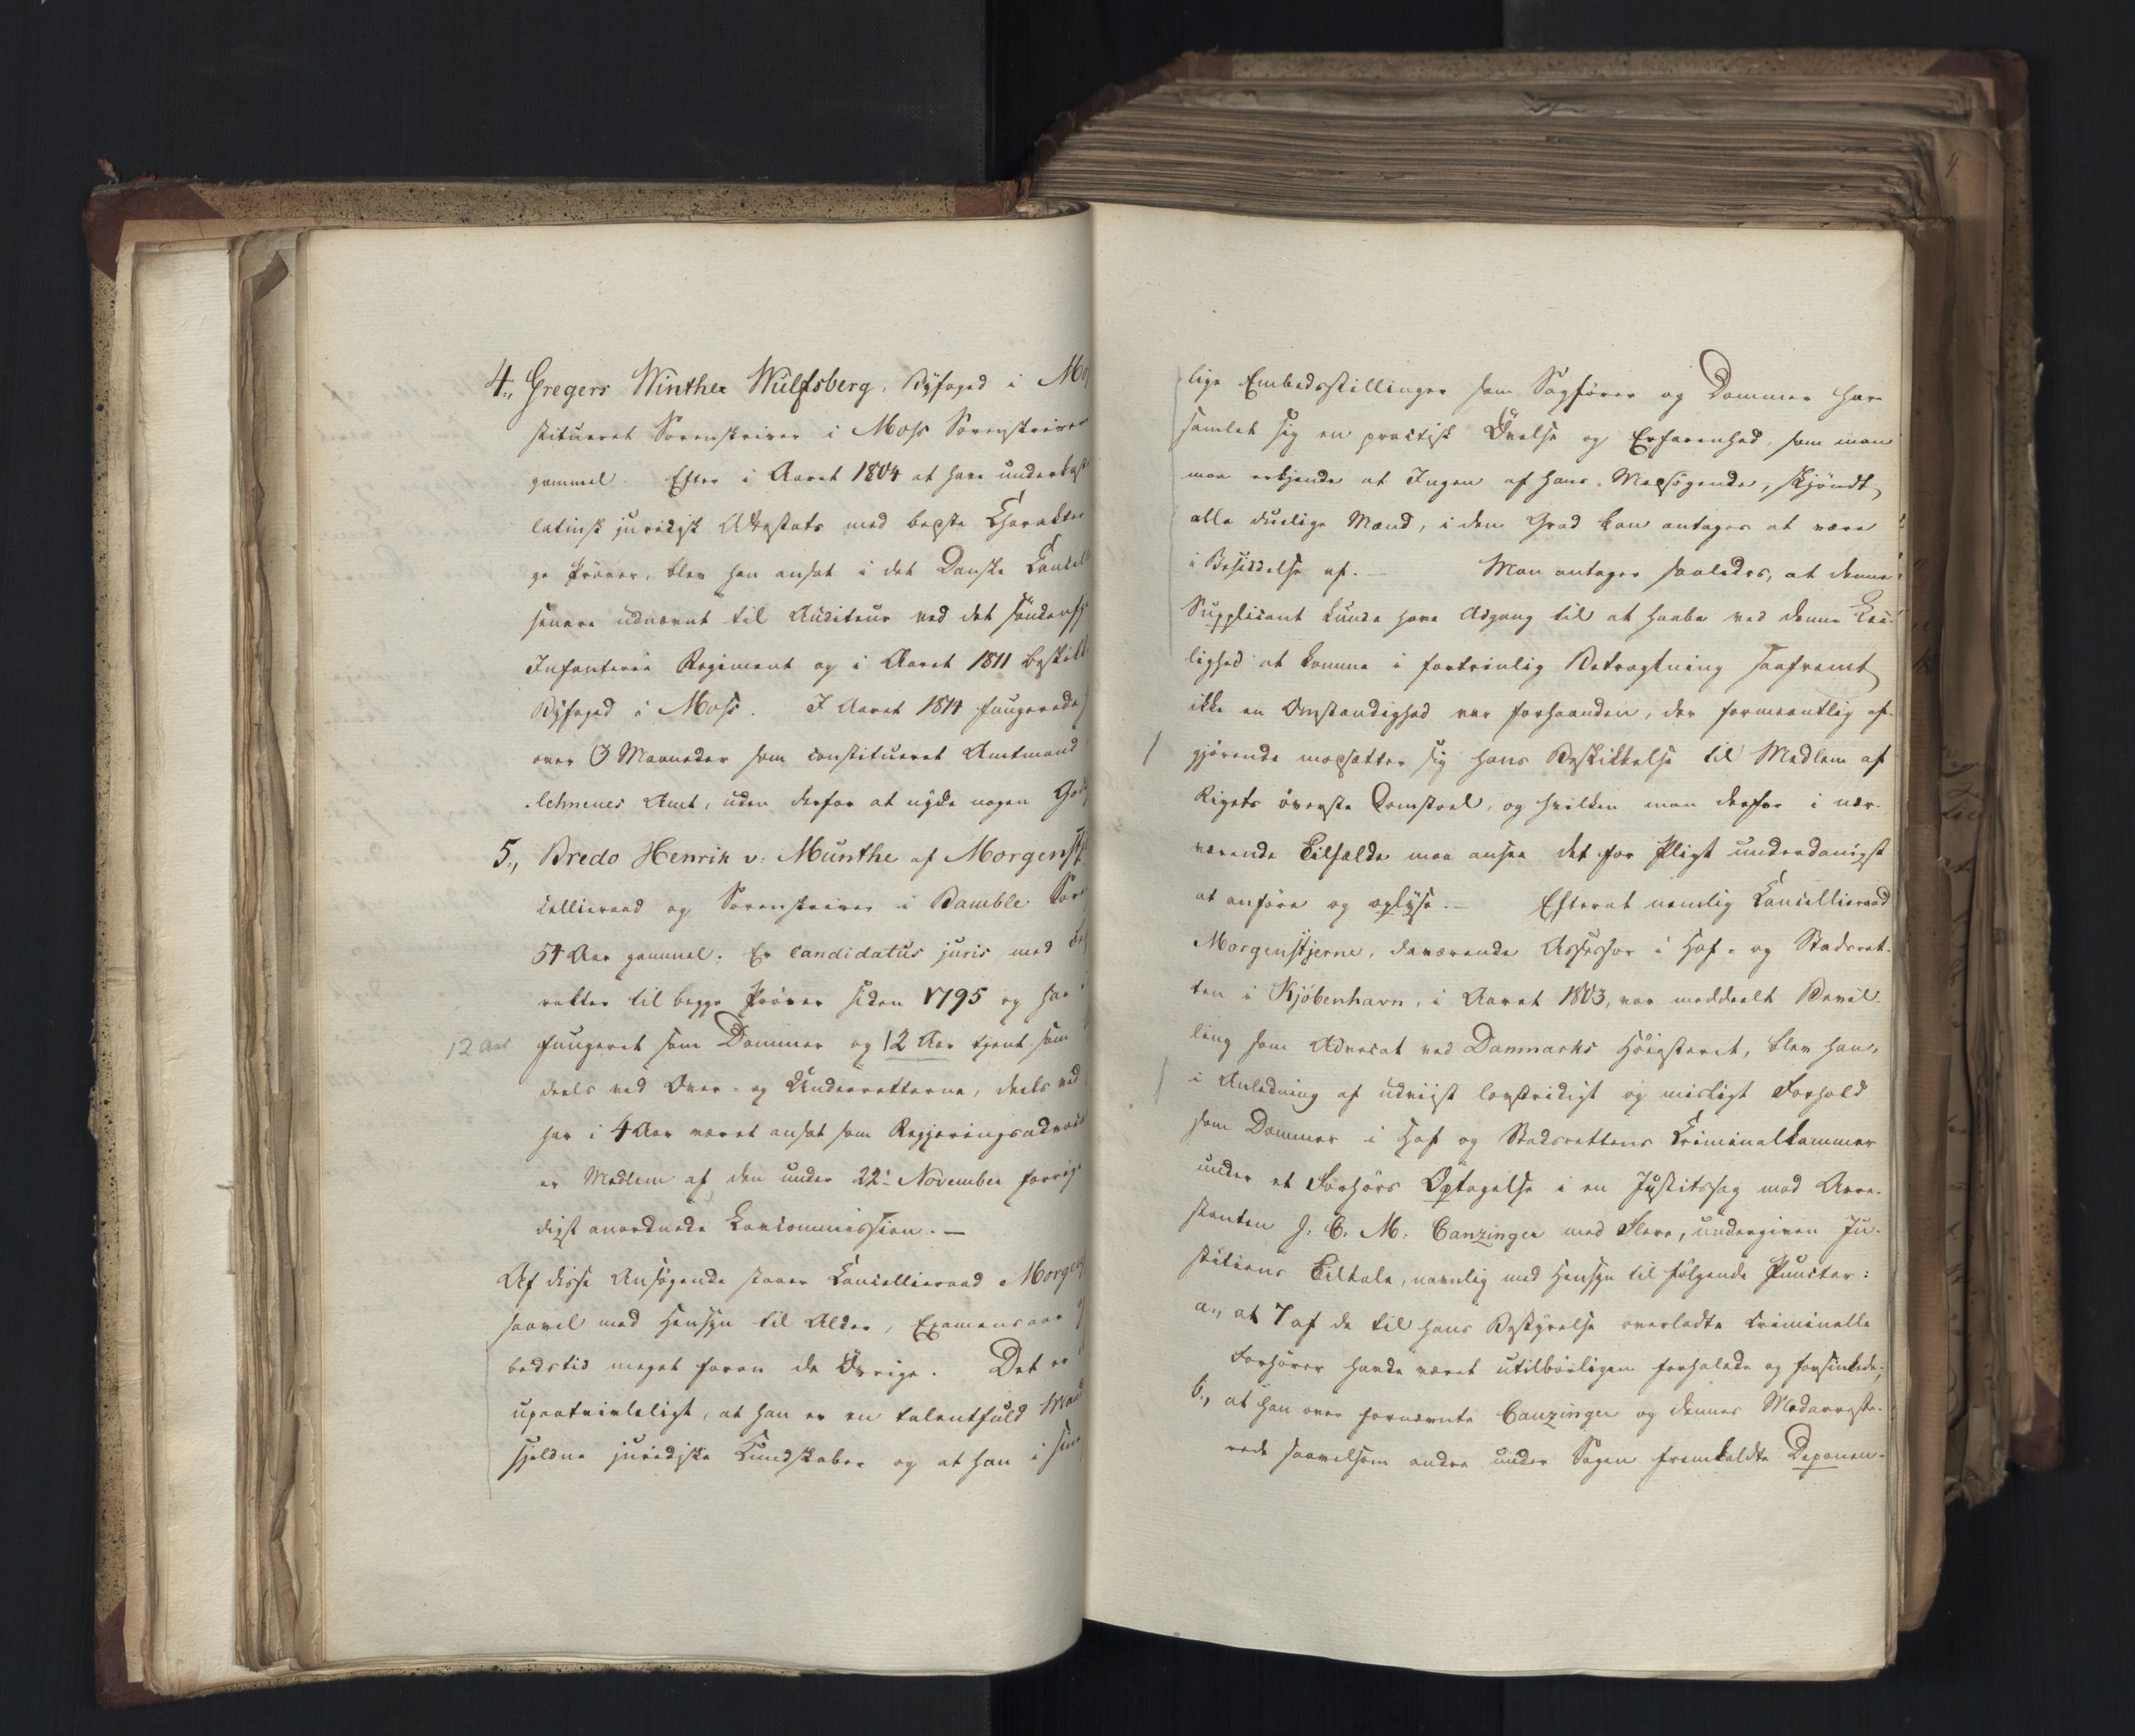 4., Gregers Winther Wulfsberg, Byfoged i Mo
stitueret Sorenskriver i Moss Sorenskriver
gammel. Efter i Aaret 1804 at have underkast
latinsk juridisk Attestats med bedste Charakter
ge Prøver, blev han ansat i det Danske Cancell
senere udnævnt til Auditeur ved det søndenfj
Infanterie Regiment og i Aaret 1811 beskikk
Byfoged i Moss. I Aaret 1814 fungerede
over 3 Maaneder som constitueret Amtmand
lehnenes Amt, uden derfor at nyde nogen God
5., Bredo Henrik v: Munthe af Morgenstj
cellieraad og Sorenskriver i Bamble Sore
54 Aar gammel. Er candidatus juris med
rakter til begge Prøver siden 1795 og har
12 Aar
fungeret som Dommer og 12 Aar tjent som
deels ved Over- og Underretterne, deels ved
har i 4 Aar været ansat som Regjeringsadvoca
er Medlem af den under 22: November forrige
digst anordnede Lovcommission. —
Af disse Ansøgende staaer Cancellieraad Morgen
saavel med Hensyn til Alder, Examensaar
bedstid meget foran de Øvrige. Det er
upaatvivleligt, at han er en talentfuld Mand
sjeldne juridiske Kundskaber og at han i sine
lige Embedsstillinger som Sagfører og Dommer har
samlet sig en practisk Øvelse og Erfarenhed, som man
maa erkjende at Ingen af hans Medsøgende, skjøndt
alle duelige Mænd, i den Grad kan antages at være
i Besiddelse af. — Man antager saaledes, at denne
Supplicant kunde have Adgang til at haabe ved denne Lei-
lighed at komme i fortrinlig Betragtning saafremt
ikke en Omstændighed var forhaanden, der formeentlig af-
gjørende modsætter sig hans Beskikkelse til Medlem af
Rigets øverste Domstoel, og hvilken man derfor i nær-
værende Tilfælde maa ansee det for Pligt underdanigst
at anføre og oplyse. — Efterat nemlig Cancellieraad
Morgenstjerne, daværende Assessor i Hof- og Stadsret-
ten i Kjøbenhavn, i Aaret 1803, var meddeelt Bevil-
ling som Advocat ved Danmarks Høiesteret, blev han,
i Anledning af udviist lovstridigt og misligt Forhold
som Dommer i Hof og Stadsrettens Criminalkammer
under et Forhørs Optagelse i en Justitssag mod Arre-
stanten J. C. M. Canzinger med Flere, undergiven Ju-
stitiens Tiltale, navnlig med Hensyn til følgende Puncter:
a., at 7 af de til hans Bestyrelse overladte criminelle
Forhører havde været utilbørligen forhalede og forsinkede;
b., at han over fornævnte Canzinger og dennes Medarreste-
rede saavelsom andre under Sagen fremkaldte Deponen-